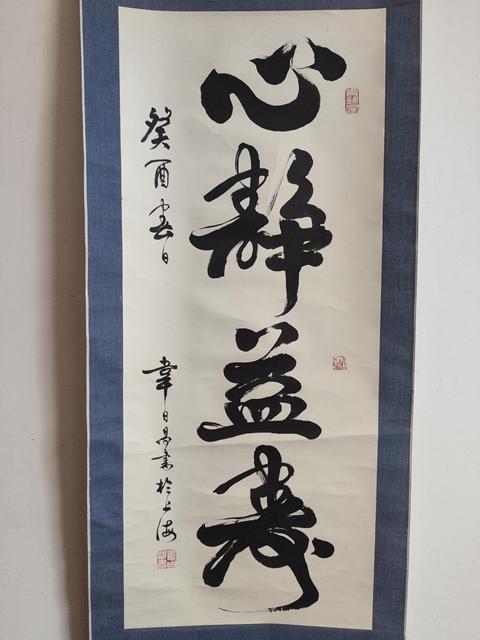 心静益寿
癸酉春日
韋日昌書於上海